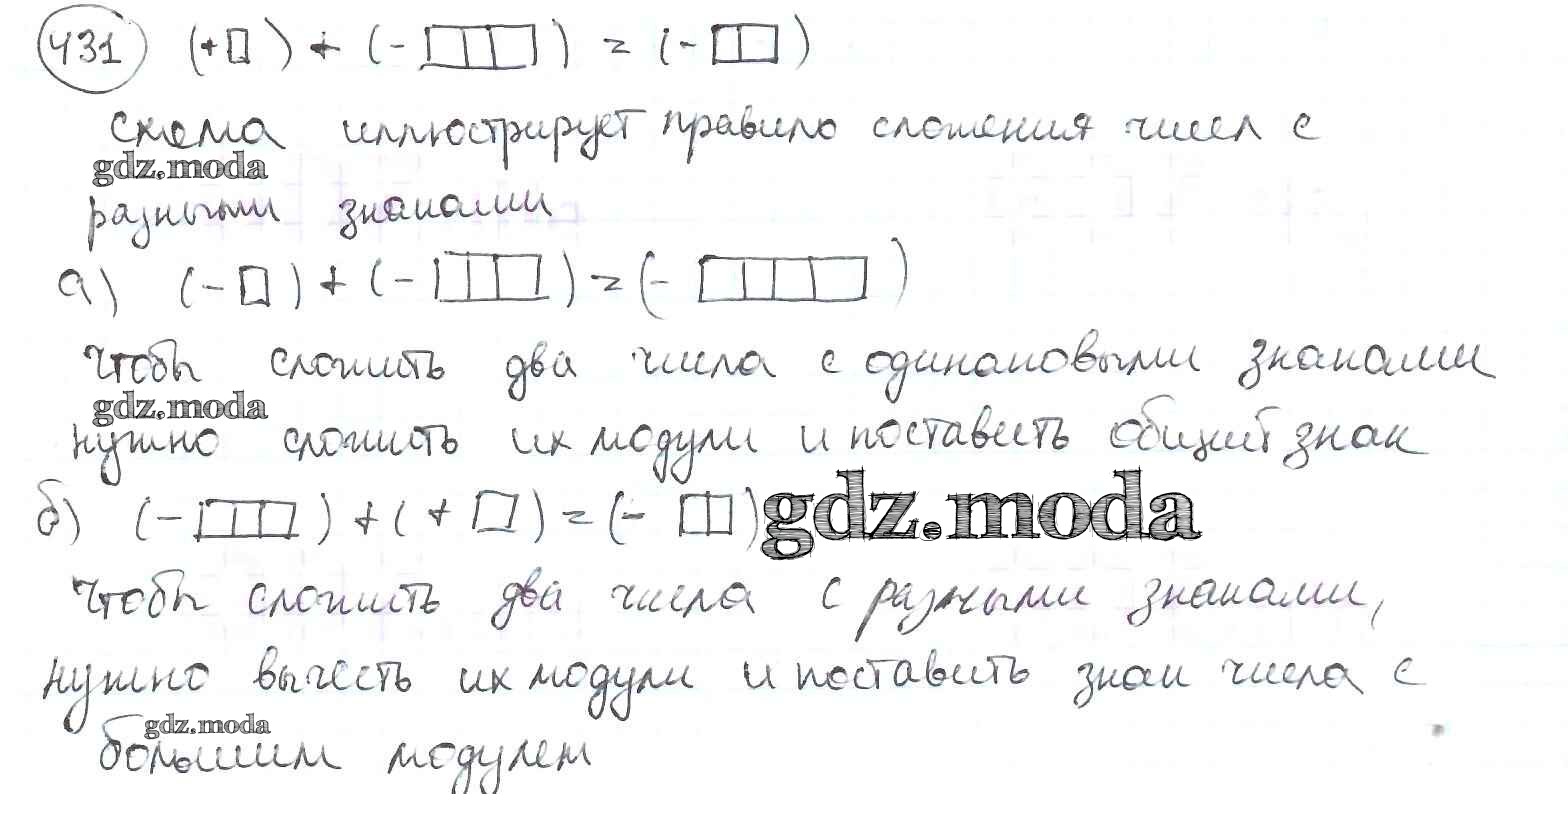 431 (+□) + (-□□□) = (-□□)
схема иллюстрирует правило сложения чисел с
gdz.moda
разными знаками
а) (-□) + (-□□□) = (-□□□□)
Чтобы сложить два числа с одинаковыми знаками
gdz.moda
нужно сложить их модули и поставить общий знак
б) (-□□□) + (+□) = (-□□) gdz.moda
Чтобы сложить два числа с разными знаками,
нужно вычесть их модули и поставить знак числа с
gdz.moda
большим модулем